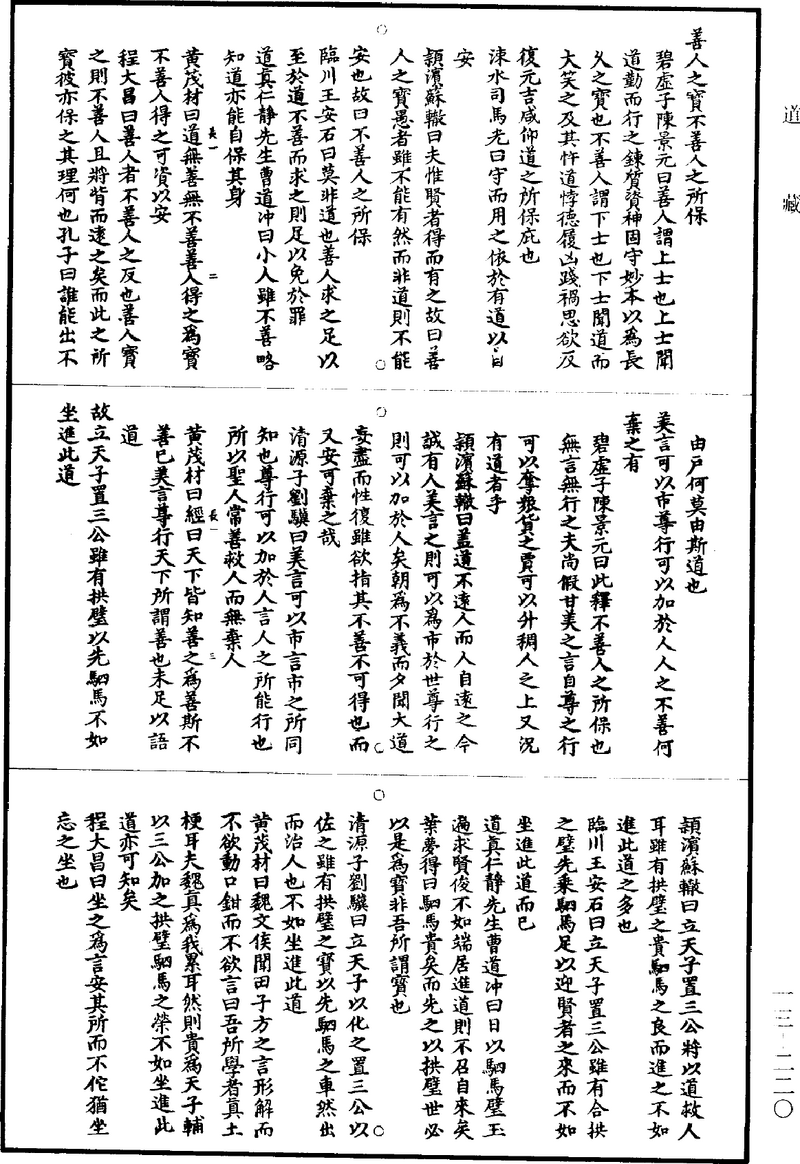 道藏
善人之寶不善人之所保
碧虛子陳景元曰善人謂上士也上士聞
道勤而行之鍊質資神固守妙本以為長
久之寶也不善人謂下士也下士聞道而
大笑之及其忤道悖德履凶踐禍思欲反
復元吉咸仰道之所保庇也
涑水司馬光曰守而用之依於有道以自
安
頴濱蘇轍曰夫惟賢者得而有之故曰善
人之寶愚者雖不能有然而非道則不能
安也故曰不善人之所保
臨川王安石曰莫非道也善人求之足以
至於道不善而求之則足以免於罪
道真仁靜先生曹道冲曰小人雖不善略
知道亦能自保其身
長一
二
黃茂材曰道無善無不善善人得之為寶
不善人得之可資以安
程大昌曰善人者不善人之反也善人寶
之則不善人且將背而遠之矣而此之所
寶彼亦保之其理何也孔子曰誰能出不
由戶何莫由斯道也
美言可以市尊行可以加於人人之不善何
棄之有
碧虛子陳景元曰此釋不善人之所保也
無言無行之夫尚假甘美之言自尊之行
可以奪眾貨之賈可以升稠人之上又況
有道者乎
頴濱蘇轍曰蓋道不遠人而人自遠之今
誠有人美言之則可以為市於世尊行之
則可以加於人矣朝為不義而夕聞大道
妄盡而性復雖欲指其不善不可得也而
又安可棄之哉
清源子劉驥曰美言可以市言市之所同
知也尊行可以加於人言人之所能行也
所以聖人常善救人而無棄人
長一
三
黃茂材曰經曰天下皆知善之為善斯不
善已美言尊行天下所謂善也未足以語
道
故立天子置三公雖有拱璧以先駟馬不如
坐進此道
頴濱蘇轍曰立天子置三公將以道救人
耳雖有拱璧之貴駟馬之良而進之不如
進此道之多也
臨川王安石曰立天子置三公雖有合拱
之璧先乘駟馬足以迎賢者之來而不如
坐進此道而已
道真仁靜先生曹道冲曰日以駟馬璧玉
遍求賢俊不如端居進道則不召自來矣
葉夢得曰駟馬貴矣而先之以拱璧世必
以是為寶非吾所謂寶也
清源子劉驥曰立天子以化之置三公以
佐之雖有拱璧之寶以先駟馬之車然出
而治人也不如坐進此道
黃茂材曰魏文侯聞田子方之言形解而
不欲動口鉗而不欲言曰吾所學者真土
梗耳夫魏真為我累耳然則貴為天子輔
以三公加之拱璧駟馬之榮不如坐進此
道亦可知矣
程大昌曰坐之為言安其所而不佗猶坐
忘之坐也
一三·二二〇